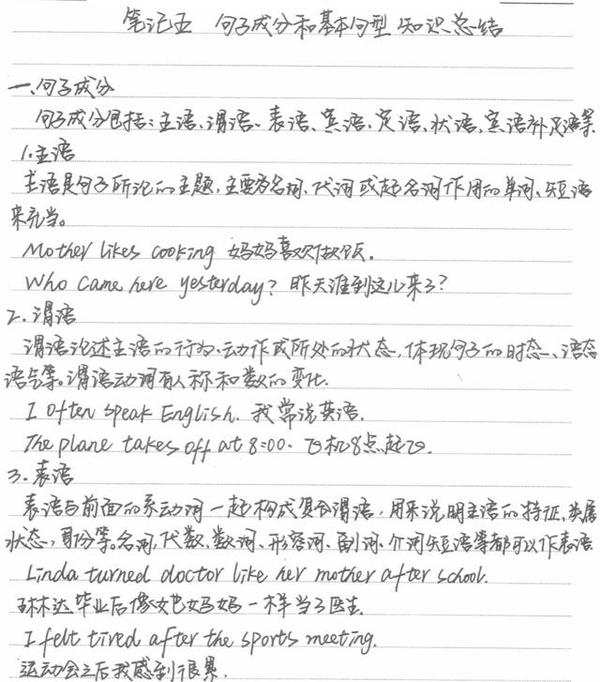 笔记五 句子成分和基本句型 知识总结
一、句子成分
句子成分包括:主语、谓语、表语、宾语、定语、状语、宾语补足语等
1.主语
主语是句子所论的主题,主要为名词、代词或起名词作用的单词、短语
来充当。
Mother likes cooking 妈妈喜欢做饭.
Who came here yesterday? 昨天谁到这儿来了?
2.谓语
谓语论述主语的行为、动作或所处的状态,体现句子的时态、语态
语气等。谓语动词有人称和数的变化.
I often speak English. 我常说英语.
The plane takes off at 8:00. 飞机8点起飞.
3.表语
表语与前面的系动词一起构成复合谓语,用来说明主语的特征、类属
状态,身份等。名词、代数、数词、形容词、副词、介词短语等都可以作表语.
Linda turned doctor like her mother after school.
琳达毕业后像她妈妈一样当了医生
I felt tired after the sports meeting.
运动会之后我感到很累.